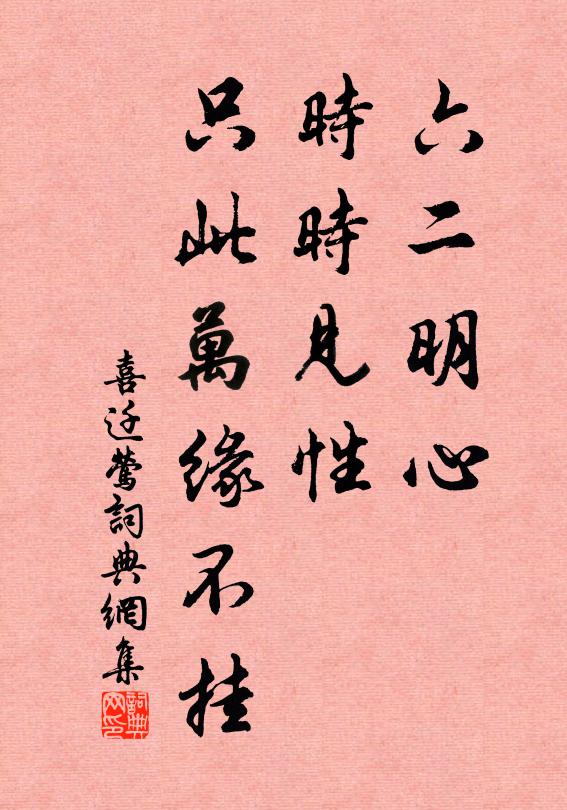 六二明心
時時見性
只此萬緣不挂
喜迁鶯詞典網集
詞典网印